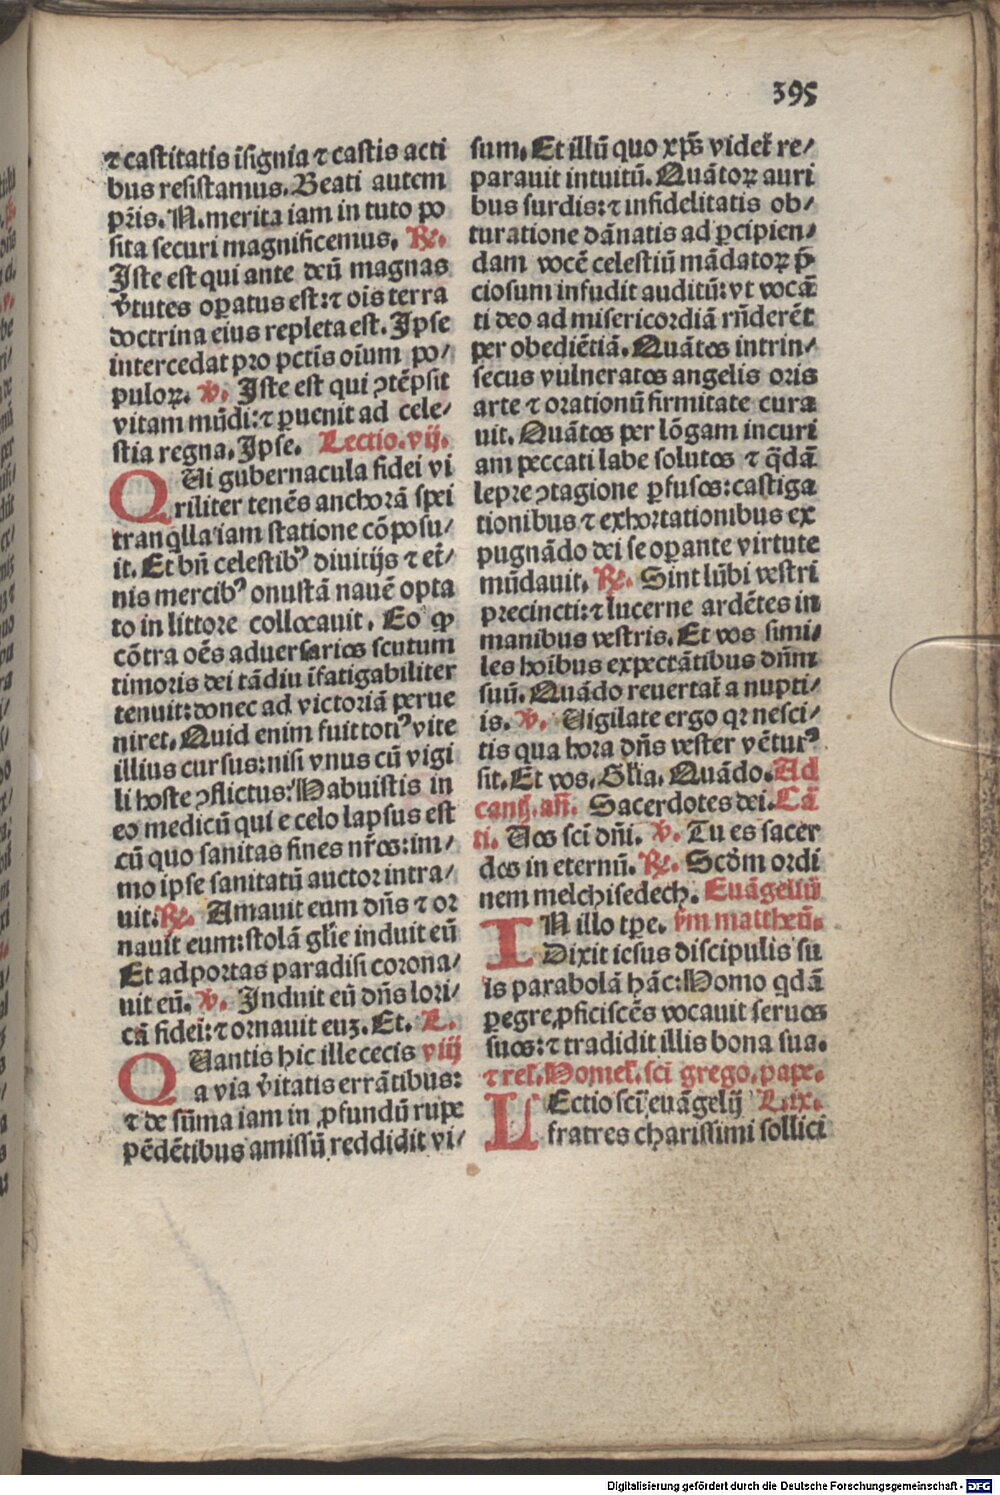 395
⁊ castitatis īsignia ⁊ castis acti
bus resistamus. Beati autem
pr̄is. N. merita iam in tuto po
sita securi magnificemus. ℟.
Iste est qui ante deū magnas
v̓tutes oꝑatus est: ⁊ oīs terra
doctrina eius repleta est. Ipse
intercedat pro pctīs oīum po/
puloꝝ. ℣. Iste est qui ꝯtēpsit
vitam mūdi: ⁊ ꝑuenit ad cele/
stia regna. Ipse. Lectio. vij.
QUi gubernacula fidei vi
riliter tenēs anchorā spei
tranq̇lla iam statione cōposu/
it. Et bn̄ celestibꝰ diuitijs ⁊ et̄/
nis mercibꝰ onustā nauē opta
to in littore collocauit. Eo ꝙ
cōtra oēs aduersarios scutum
timoris dei tādiu īfatigabiliter
tenuit: donec ad victoriā perue
niret. Quid enim fuit totiꝰ vite
illius cursus: nisi vnus cū vigi
li hoste ꝯflictus? Habuistis in
eo medicū qui e celo lapsus est
cū quo sanitas fines nr̄os: im/
mo ipse sanitatū auctor intra/
uit. ℟. Amauit eum dn̄s ⁊ or
nauit eum: stolā gl̄ie induit eū
Et ad portas paradisi corona/
uit eū. ℣. Induit eū dn̄s lori/
cā fidei: ⁊ ornauit euꝫ. Et. L.
QUantis hic ille cecis viij
a via v̓itatis errātibus:
⁊ de sūma iam in ꝓfundū rupe
pēdētibus amissū reddidit vi/
sum. Et illū quo xp̄s videt̄ re/
parauit intuitū. Quātoꝝ auri
bus surdis: ⁊ infidelitatis ob/
turatione dānatis ad ꝑcipien/
dam vocē celestiū mādatoꝝ p̄
ciosum infudit auditū: vt vocā
ti deo ad misericordiā rn̄derēt
per obediētiā. Quātos intrin/
secus vulneratos angelis oris
arte ⁊ orationū firmitate cura
uit. Quātos per lōgam incuri
am peccati labe solutos ⁊ q̄dā
lepre ꝯtagione ꝑfusos: castiga
tionibus ⁊ exhortationibus ex
pugnādo dei se oꝑante virtute
mūdauit. ℟. Sint lūbi vestri
precincti: ⁊ lucerne ardētes in
manibus vestris. Et vos simi/
les hoībus expectātibus dn̄m
suū. Quādo reuertat̄ a nupti/
is. ℣. Uigilate ergo qꝛ nesci/
tis qua hora dn̄s vester vēturꝰ
sit. Et vos. Gl̄ia. Quādo. Ad
cantꝫ. an̄. Sacerdotes dei. Cā
ti. Uos sci dn̄i. ℣. Tu es sacer
dos in eternū. ℟. Scd̄m ordi
nem melchisedech. Euāgeliū
IN illo tꝑe. ẜm mattheū.
Dixit iesus discipulis su
is parabolā hāc: Homo qdā
ꝑegre ꝓficiscēs vocauit seruos
suos: ⁊ tradidit illis bona sua.
⁊ rel̄. Homel̄. sci grego. pape.
LEctio sci euāgelij L. ix.
fratres charissimi sollici
Digitalisierung gefördert durch die Deutsche Forschungsgemeinschaft - DFG